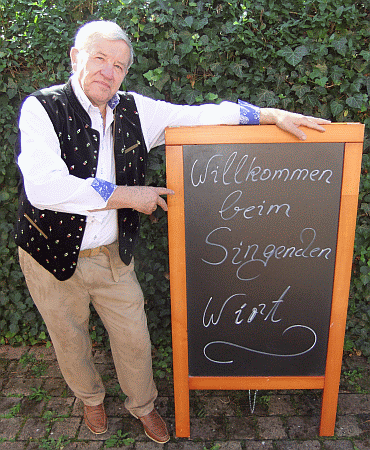 Willkommen
beim
Singenden
Wirt